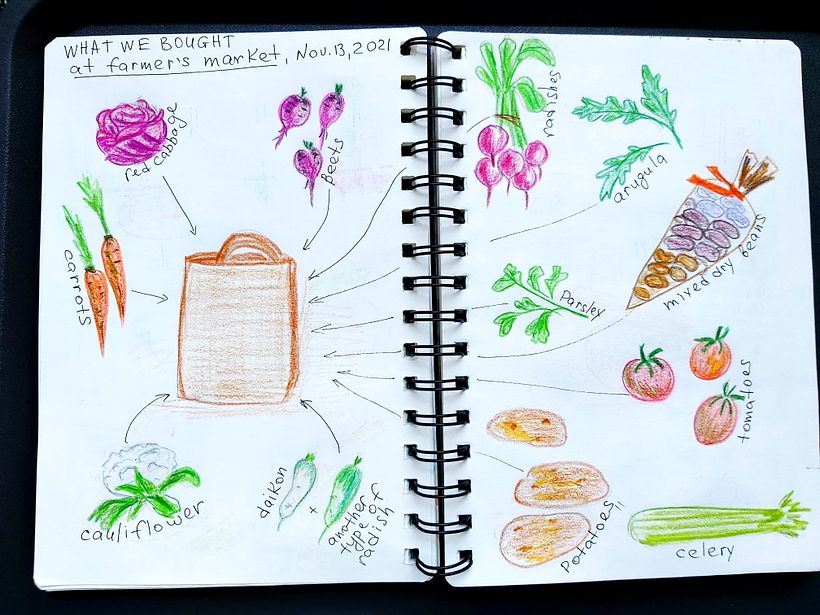 WHAT WE BOUGHT
at farmer's market, Nov. 13, 2021
red cabbage
beets
carrots
cauliflower
daikon
+
another
type of
radish
radishes
arugula
mixed dry beans
Parsley
tomatoes
potatoes
celery